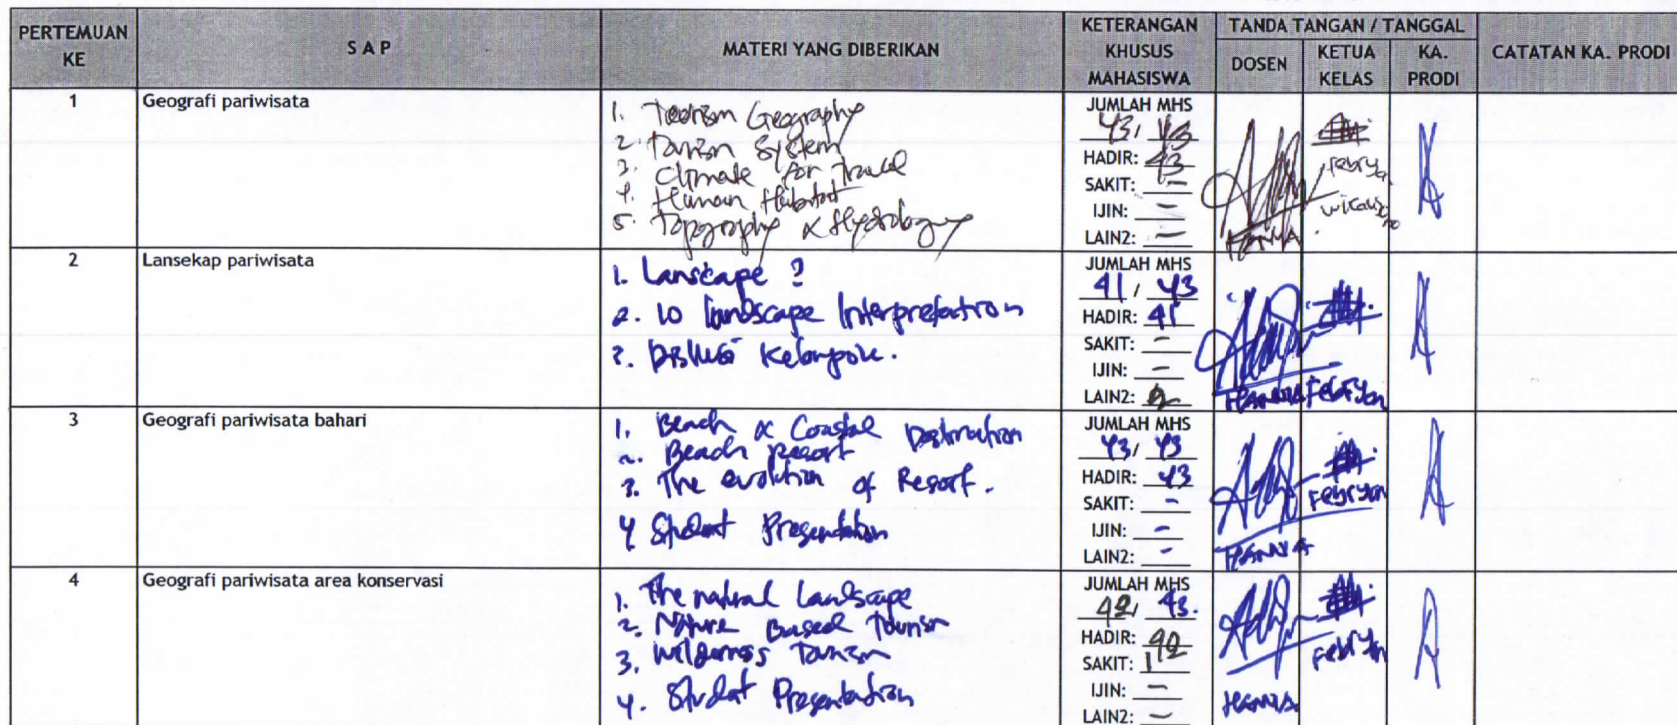 PERTEMUAN KE
S A P
MATERI YANG DIBERIKAN
KETERANGAN KHUSUS MAHASISWA
TANDA TANGAN / TANGGAL
DOSEN
KETUA KELAS
KA. PRODI
CATATAN KA. PRODI
1
Geografi pariwisata
1. Tourism Geography
2. Tourism System
3. Climate for Travel
4. Human Habitat
5. Topography & Hydrology
JUMLAH MHS
43, 43
HADIR: 43
SAKIT: -
IJIN: -
LAIN2: -
HANNA
Febryan
wicaksono
2
Lansekap pariwisata
1. Lanscape ?
2. 10 landscape Interpretation
3. Diskusi Kelompok.
JUMLAH MHS
41, 43
HADIR: 41
SAKIT: -
IJIN: -
LAIN2: 2
HANNA
Febryan
3
Geografi pariwisata bahari
1. Beach & Coastal Destination
2. Beach resort
3. The evolution of Resort.
4 Student Presentation
JUMLAH MHS
43, 43
HADIR: 43
SAKIT: -
IJIN: -
LAIN2: -
HANNA
Febryan
4
Geografi pariwisata area konservasi
1. The natural Landscape
2. Nature Based Tourism
3. Wilderness Tourism
4. Student Presentation
JUMLAH MHS
42, 43.
HADIR: 42
SAKIT: 1
IJIN: -
LAIN2: -
HANNA
Febryan